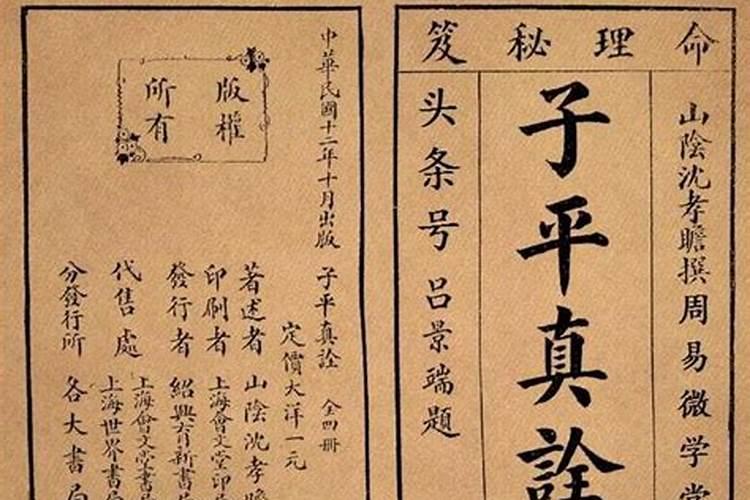 命理秘笈
山陰沈孝瞻撰周易微学堂
子平真詮
头条号吕景瑞題
版權
所有
中華民國十二年十月出版
子平真詮 全四冊
定價大洋一元
著述者 山陰沈孝瞻
印刷者 上海會文堂印
發行者 紹興育新書
代售處 上海會文堂書局
上海世界書局
分發行所 各大書局